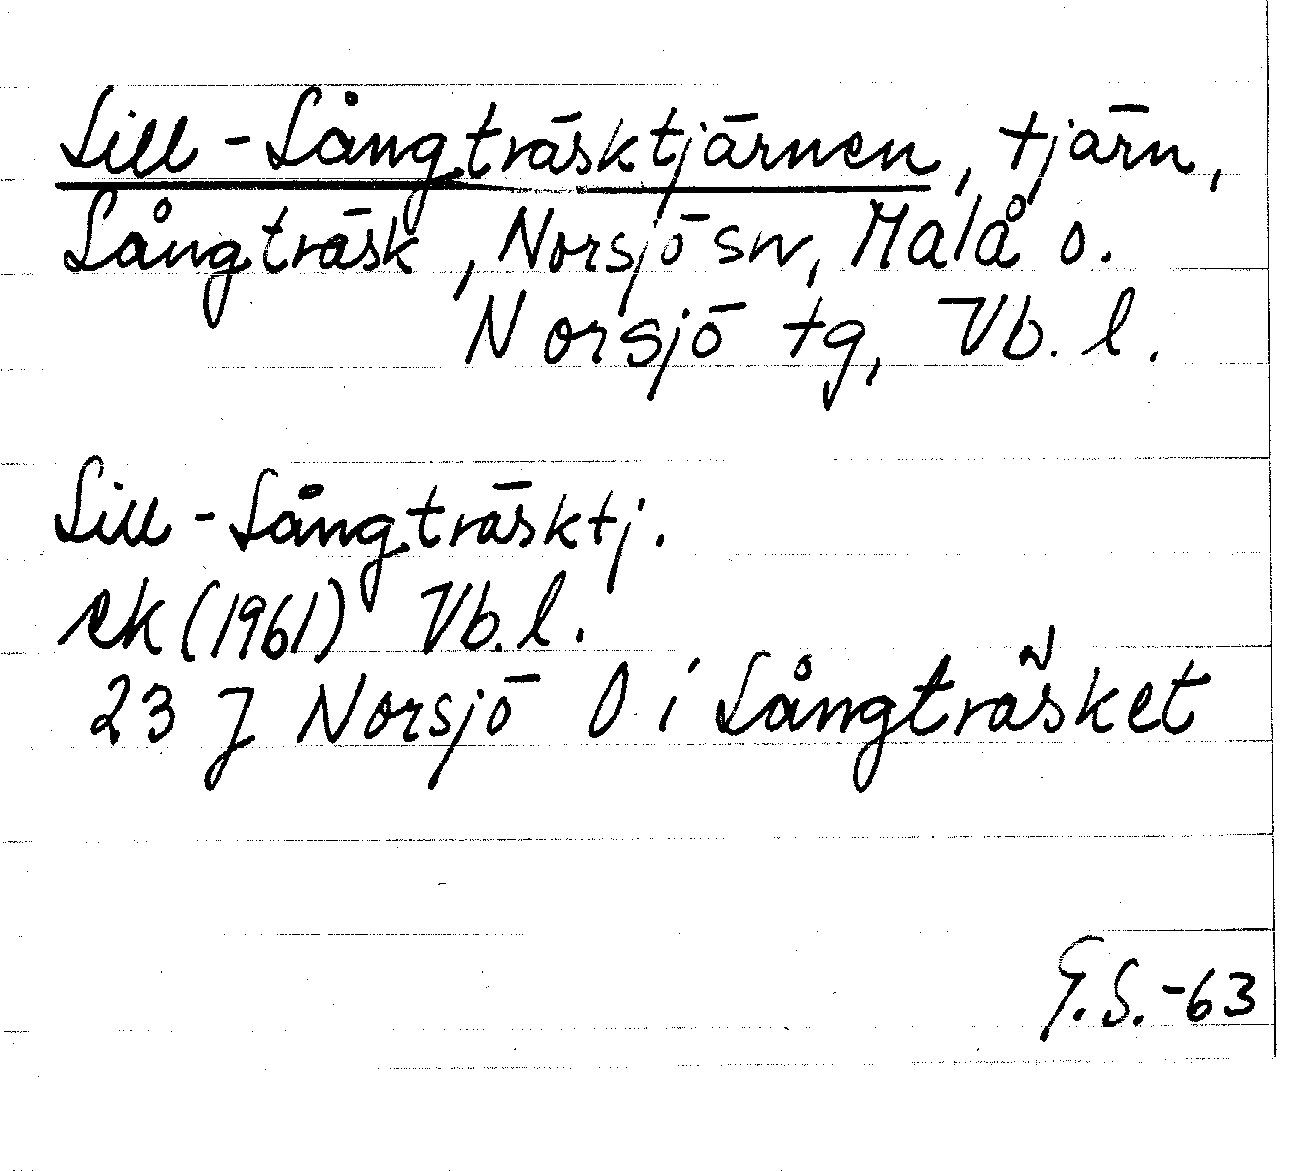 Lill-Långträsktjärnen, tjärn,
Långträsk, Norsjö sn, Malå o.
Norsjö tg, Vb. l.
Lill-Långträsktj.
ek (1961) Vb. l.
23 J Norsjö O i Långträsket
G.S.-63